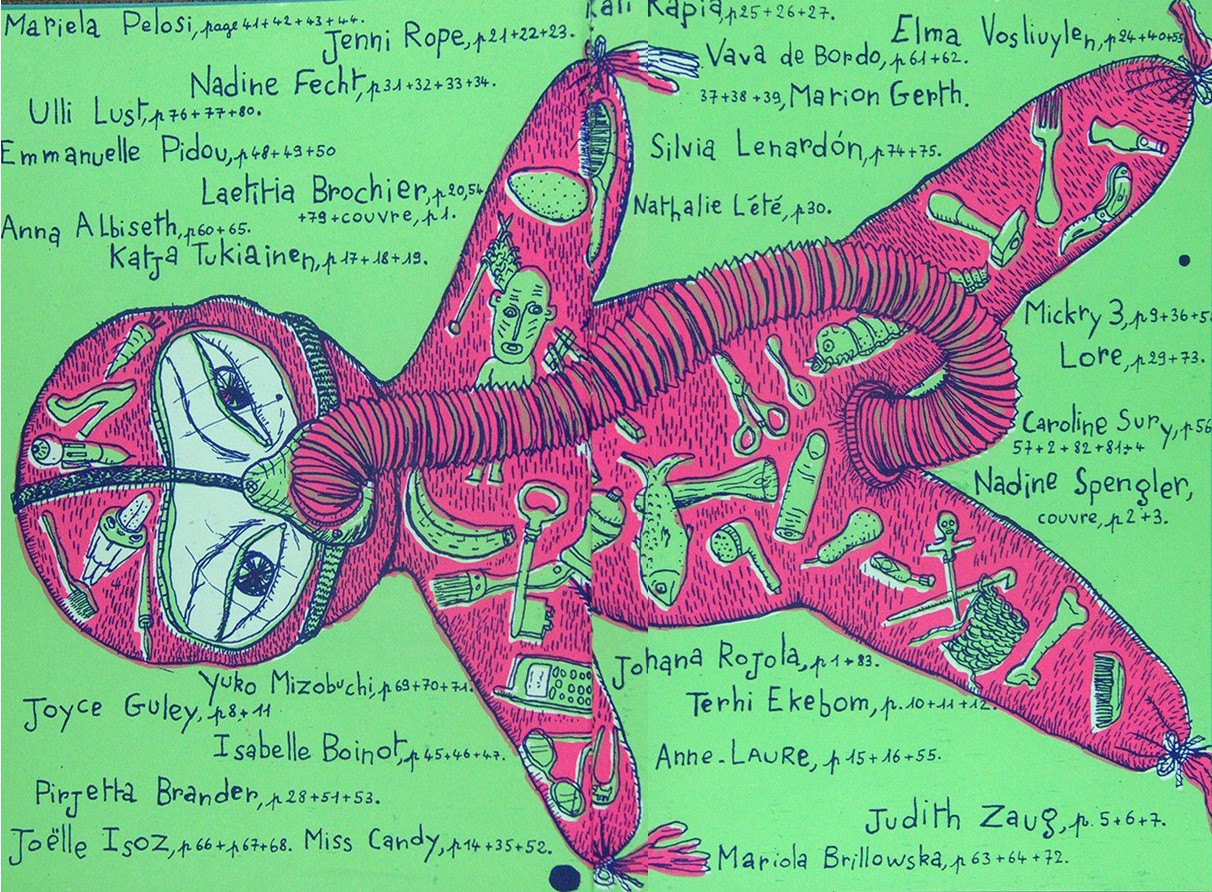 Mariela Pelosi, page 41+42+43+44.
Jenni Rope, p21+22+23.
Nadine Fecht, p31+32+33+34.
Ulli Lust, p76+77+80.
Emmanuelle Pidou, p48+49+50
Laetitia Brochier, p.20,54
+79+couvre, p1.
Anna Albiseth, p60+65.
Katja Tukiainen, p17+18+19.
Kati Rapia, p25+26+27.
Elma Vosliuylen, p24+40+55
Vava de Bordo, p61+62.
37+38+39, Marion Gerth.
Silvia Lenardón, p74+75.
Nathalie Lété, p30.
Mickry 3, p9+36+5
Lore, p29+73.
Caroline Sury, p56
57+2+82+81+4
Nadine Spengler,
couvre, p2+3.
Yuko Mizobuchi, p69+70+71.
Joyce Guley, p8+11
Isabelle Boinot, p45+46+47.
Pirjetta Brander, p28+51+53.
Joëlle Isoz, p66+p67+68. Miss Candy, p14+35+52.
Johana Rojola, p1+83.
Terhi Ekebom, p.10+11+12.
Anne-LAURE, p15+16+55.
Judith Zaug, p.5+6+7.
Mariola Brillowska, p63+64+72.